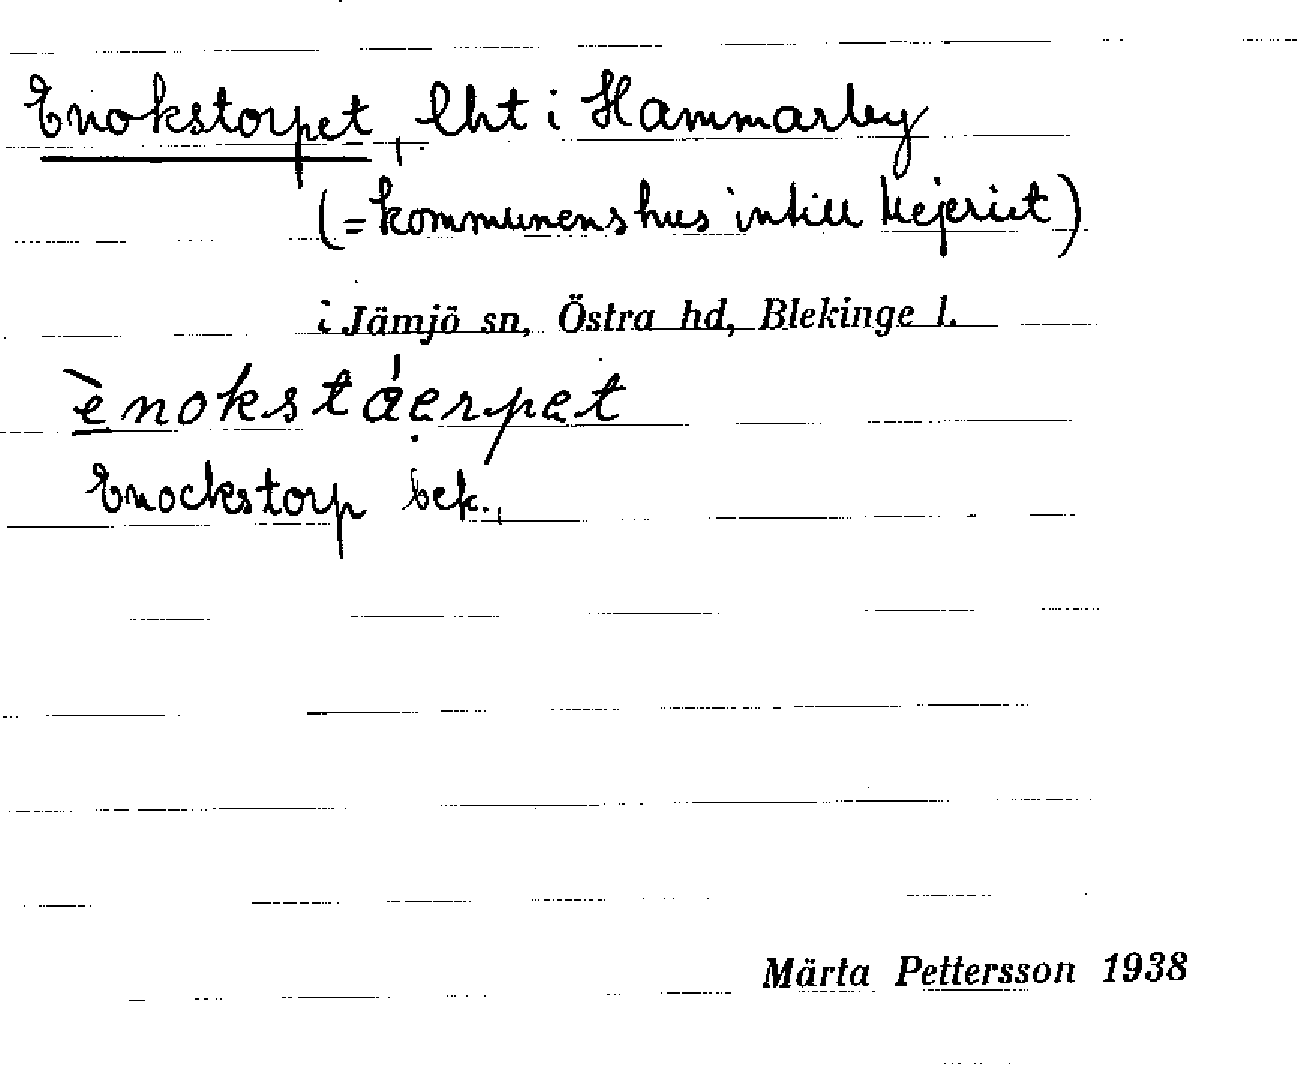 Enokstorpet, lht i Hammarby
(= kommunens hus intill Mejeriet)
i Jämjö sn, Östra hd, Blekinge l.
ènokstáerpet
Enockstorp bek.,
Märta Pettersson 1938